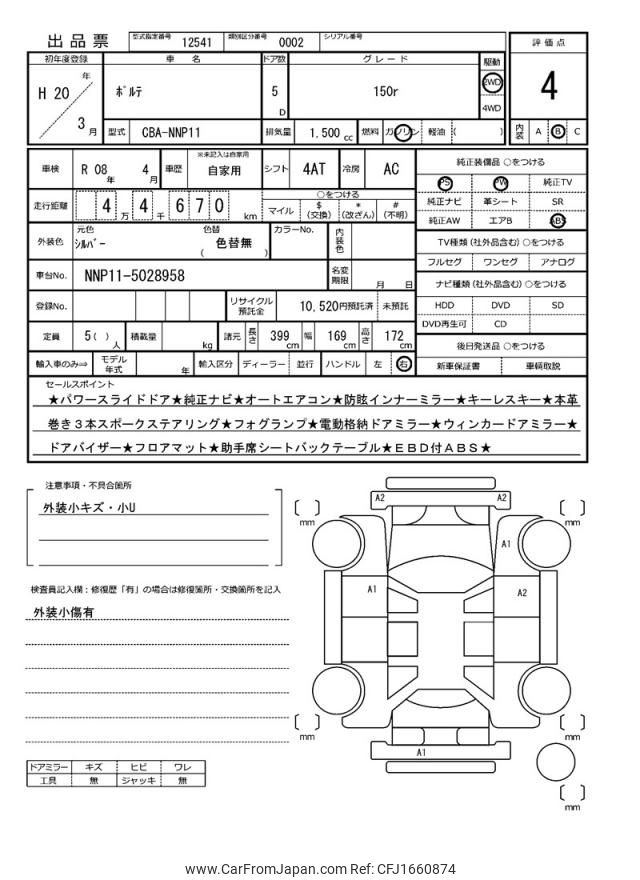 出品票
型式指定番号 12541 類別区分番号 0002 シリアル番号
評価点
初年度登録 車名 ドア数 グレード 駆動
H 20 年 ﾎﾟﾙﾃ 5 D 150r 2WD 4WD
4
3 月 型式 CBA-NNP11 排気量 1.500 cc 燃料 ガソリン 軽油 ( )
内装 A B C
車検 R 08 年 4 月 車歴 ※未記入は自家用 自家用 シフト 4AT 冷房 AC
純正装備品 ○をつける
PS PW 純正TV
走行距離 4 万 4 千 6 7 0 km
○をつける
マイル $(交換) *(改ざん) #(不明)
純正ナビ 革シート SR
純正AW エアB ABS
外装色 元色 ｼﾙﾊﾞｰ 色替 ( 色替無 ) カラーNo. 内装色
TV種類 (社外品含む) ○をつける
フルセグ ワンセグ アナログ
車台No. NNP11-5028958 名変期限 月 日
ナビ種類 (社外品含む) ○をつける
登録No. リサイクル預託金 10,520円預託済 未預託
HDD DVD SD
DVD再生可 CD
定員 5( ) 人 積載量 kg 諸元 長さ 399 cm 幅 169 cm 高さ 172 cm
後日発送品 ○をつける
輸入車のみ⇨ モデル年式 年 輸入区分 ディーラー 並行 ハンドル 左 右
新車保証書 車輌取説
セールスポイント
★パワースライドドア★純正ナビ★オートエアコン★防眩インナーミラー★キーレスキー★本革
巻き３本スポークステアリング★フォグランプ★電動格納ドアミラー★ウィンカードアミラー★
ドアバイザー★フロアマット★助手席シートバックテーブル★ＥＢＤ付ＡＢＳ★
注意事項・不具合箇所
外装小キズ・小U
検査員記入欄：修復歴「有」の場合は修復箇所・交換箇所を記入
外装小傷有
A2 A2
mm mm
A1
A1 A2
mm mm
A1
mm
ドアミラー キズ ヒビ ワレ
工具 無 ジャッキ 無
www.CarFromJapan.com Ref: CFJ1660874